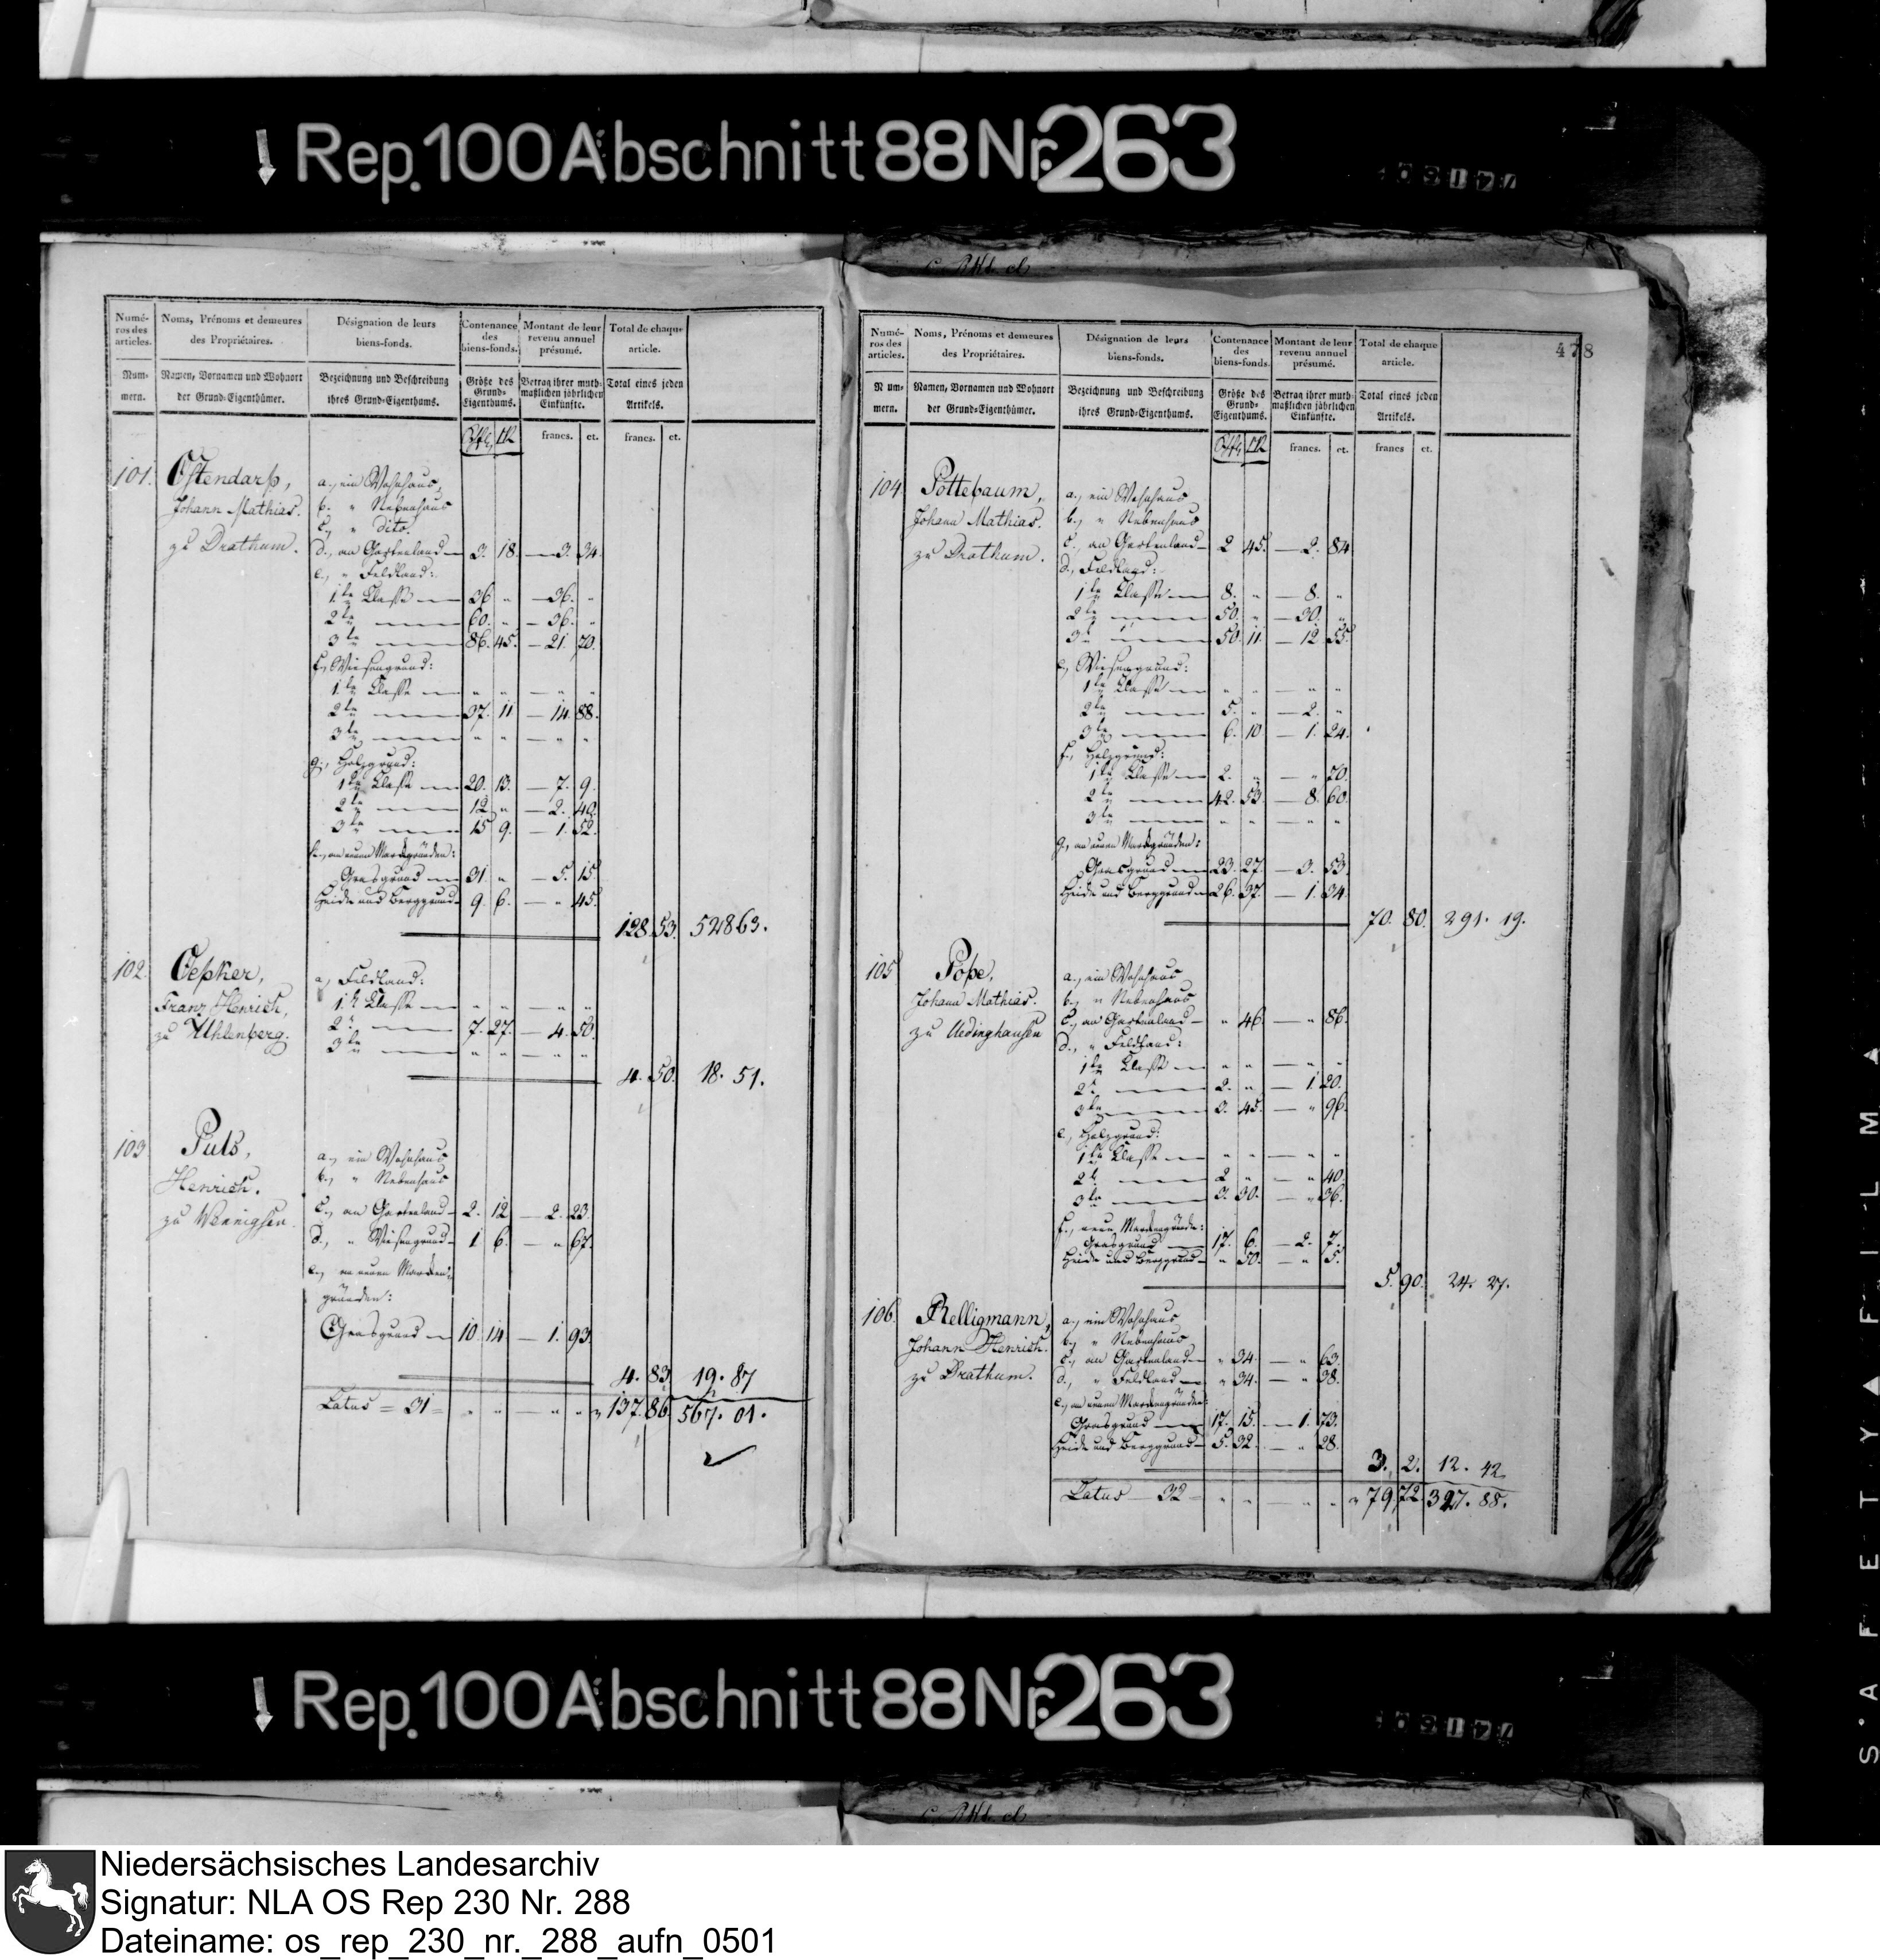 ↓ Rep. 100 Abschnitt 88 Nr. 263
Numé-ros des articles. | Noms, Prénoms et demeures des Propriétaires. | Désignation de leurs biens-fonds. | Contenance des biens-fonds. | Montant de leur revenu annuel présumé. | Total de chaque article.
Num-mern. | Namen, Vornamen und Wohnort der Grund-Eigenthümer. | Bezeichnung und Beschreibung ihres Grund-Eigenthums. | Größe des Grund-Eigenthums. | Betrag ihrer muth-maßlichen jährlichen Einkünfte. | Total eines jeden Artikels.
francs. | ct. | francs. | ct.
101. Ostendarp, a., ein Wohnhaus
Johann Mathias. b. " Nebenhaus
c., " dito
zu Drathum. d., an Gartenland — 3. 18. — 3. 34.
e., " Feldland:
1te Classe — 36 " — 36. "
2te — 60. " — 36. "
3te — 86. 45. — 21. 70.
f., Wiesengrund:
1te Classe — " " — " "
2te — 37. 11 — 14. 88.
3te — " " — " "
g., Holzgrund:
1te Classe — 20. 13. — 7. 9.
2te — 12 " — 2. 40.
3te — 15 9. — 1. 52.
h., an neuen Markgründen:
Grasgrund — 31. " — 5. 15.
Heide und Berggrund — 9. 6. — " 45.
128. 53. 528 63.
102. Oepker, a., Feldland:
Franz Henrich, 1te Classe — " " — " "
zu Uhlenberg. 2te — 7. 27. — 4. 50.
3te — " " — " "
4. 50. 18. 51.
103 Puls, a., ein Wohnhaus
Henrich. b., " Nebenhaus
zu Wennigsen. c., an Gartenland — 2. 12 — 2. 23.
d., " Wiesengrund — 1 6. — " 67.
e., an neuen Marken-
gründen:
Grasgrund — 10. 14 — 1. 93.
4. 83. 19. 87
Latus = 31 = " " — " " " 137. 86. 567. 01.
478
Numé-ros des articles. | Noms, Prénoms et demeures des Propriétaires. | Désignation de leurs biens-fonds. | Contenance des biens-fonds. | Montant de leur revenu annuel présumé. | Total de chaque article.
Num-mern. | Namen, Vornamen und Wohnort der Grund-Eigenthümer. | Bezeichnung und Beschreibung ihres Grund-Eigenthums. | Größe des Grund-Eigenthums. | Betrag ihrer muth-maßlichen jährlichen Einkünfte. | Total eines jeden Artikels.
francs. | ct. | francs | ct.
104 Pottebaum, a., ein Wohnhaus
Johann Mathias. b., " Nebenhaus
zu Drathum. c., an Gartenland — 2 45. — 2. 84
d., Feldland:
1te Classe — 8. " — 8. "
2te — 50. " — 30. "
3te — 50. 11. — 12. 55.
e., Wiesengrund:
1te Classe — " " — " "
2te — 5. " — 2. "
3te — 6. 10 — 1. 24.
f., Holzgrund:
1te Classe — 2. " — " 70.
2te — 42. 53. — 8. 60.
3te — " " — " "
g., an neuen Markgründen:
Grasgrund — 23. 27. — 3. 53.
Heide und Berggrund — 26. 37. — 1. 34.
70. 80. 291. 19.
105 Pope, a., ein Wohnhaus
Johann Mathias. b., " Nebenhaus
zu Uedinghausen c., an Gartenland — " 46. — " 86.
d., " Feldland:
1te Classe — " " — " "
2te — 2. " — 1. 20.
3te — 3. 45. — " 96.
e., Holzgrund:
1te Classe — " " — " "
2te — 2 " — " 40.
3te — 3. 30. — " 36.
f., neuen Markengründen:
Grasgrund — 17. 6. — 2. 7.
Heide und Berggrund — " 50. — " 5.
5. 90. 24. 27.
106. Relligmann, a., ein Wohnhaus
Johann Henrich. b., " Nebenhaus
c., an Gartenland — " 34. — " 63.
zu Drathum. d., " Feldland — " 34. — " 38.
e., an neuen Markengründen:
Grasgrund — 17. 15. — 1. 73.
Heide und Berggrund — 5. 32. — " 28.
3. 2. 12. 42
Latus — 32 — " " — " " " 79. 72. 327. 88.
↓ Rep. 100 Abschnitt 88 Nr. 263
S.A.F.E.T.Y ▲ F.I.L.M ▲
Niedersächsisches Landesarchiv
Signatur: NLA OS Rep 230 Nr. 288
Dateiname: os_rep_230_nr._288_aufn_0501